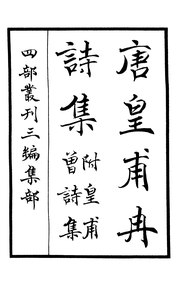 唐皇甫冉
詩集
附皇甫
曾詩集
四部叢刊三編集部